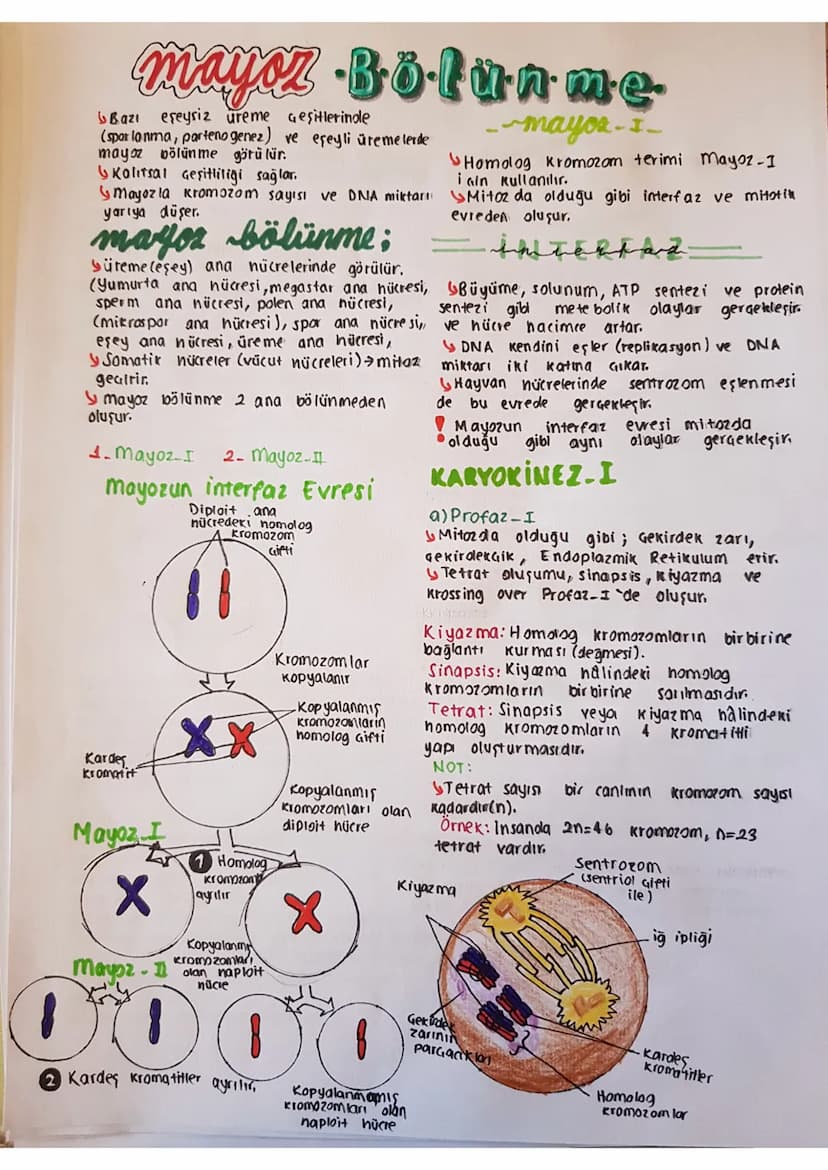 mayoz Bölünme
↳Bazı eşeysiz üreme çeşitlerinde
(sporlanma, partenogenez) ve eşeyli üremelerde
mayoz bölünme görülür.
↳Kalıtsal çeşitliliği sağlar.
↳Mayozla kromozom sayısı ve DNA miktarı
yarıya düşer.
mayoz bölünme;
↳üreme(eşey) ana hücrelerinde görülür.
(Yumurta ana hücresi, megastar ana hücresi,
sperm ana hücresi, polen ana hücresi,
(mikrospor ana hücresi), spor ana hücresi,
eşey ana hücresi, üreme ana hücresi,
↳Somatik hücreler (vücut hücreleri)→mitoz
geçirir.
↳mayoz bölünme 2 ana bölünmeden
oluşur.
1-Mayoz-I 2-Mayoz-II
mayozun interfaz Evresi
Diploit ana
hücredeki homolog
kromozom
çifti
Kromozomlar
kopyalanır
Kopyalanmış
kromozomların
homolog çifti
Kardeş
kromatit
Kopyalanmış
kromozomları olan
diploit hücre
Mayoz-I
1 Homolog
kromozom
ayrılır
Kopyalanmış
kromozomları
olan haploit
hücre
Mayoz-II
2 Kardeş kromatitler ayrılır.
Kopyalanmamış
kromozomları olan
haploit hücre
mayoz-I
↳Homolog kromozom terimi Mayoz-I
için kullanılır.
↳Mitozda olduğu gibi interfaz ve mitotik
evreden oluşur.
İNTERFAZ
↳Büyüme, solunum, ATP sentezi ve protein
sentezi gibi metebolik olaylar gerçekleşir.
ve hücre hacimce artar.
↳DNA kendini eşler (replikasyon) ve DNA
miktarı iki katına çıkar.
↳Hayvan hücrelerinde sentrozom eşlenmesi
de bu evrede gerçekleşir.
! Mayozun interfaz evresi mitozda
olduğu gibi aynı olaylar gerçekleşir.
KARYOKİNEZ-I
a)Profaz-I
↳Mitozda olduğu gibi; Çekirdek zarı,
çekirdekçik, Endoplazmik Retikulum erir.
↳Tetrat oluşumu, sinapsis, kiyazma ve
krossing over Profaz-I'de oluşur.
Kiyazma: Homolog kromozomların birbirine
bağlantı kurması(değmesi).
Sinapsis: Kiyazma hâlindeki homolog
kromozomların birbirine sarılmasıdır.
Tetrat: Sinapsis veya kiyazma hâlindeki
homolog kromozomların 4 kromatitli
yapı oluşturmasıdır.
NOT:
↳Tetrat sayısı bir canlının kromozom sayısı
kadardır(n).
Örnek: İnsanda 2n=46 kromozom, n=23
tetrat vardır.
Sentrozom
(sentriol çifti
ile)
Kiyazma
iğ ipliği
Çekirdek
zarının
parçacıkları
Kardeş
kromatitler
Homolog
kromozomlar